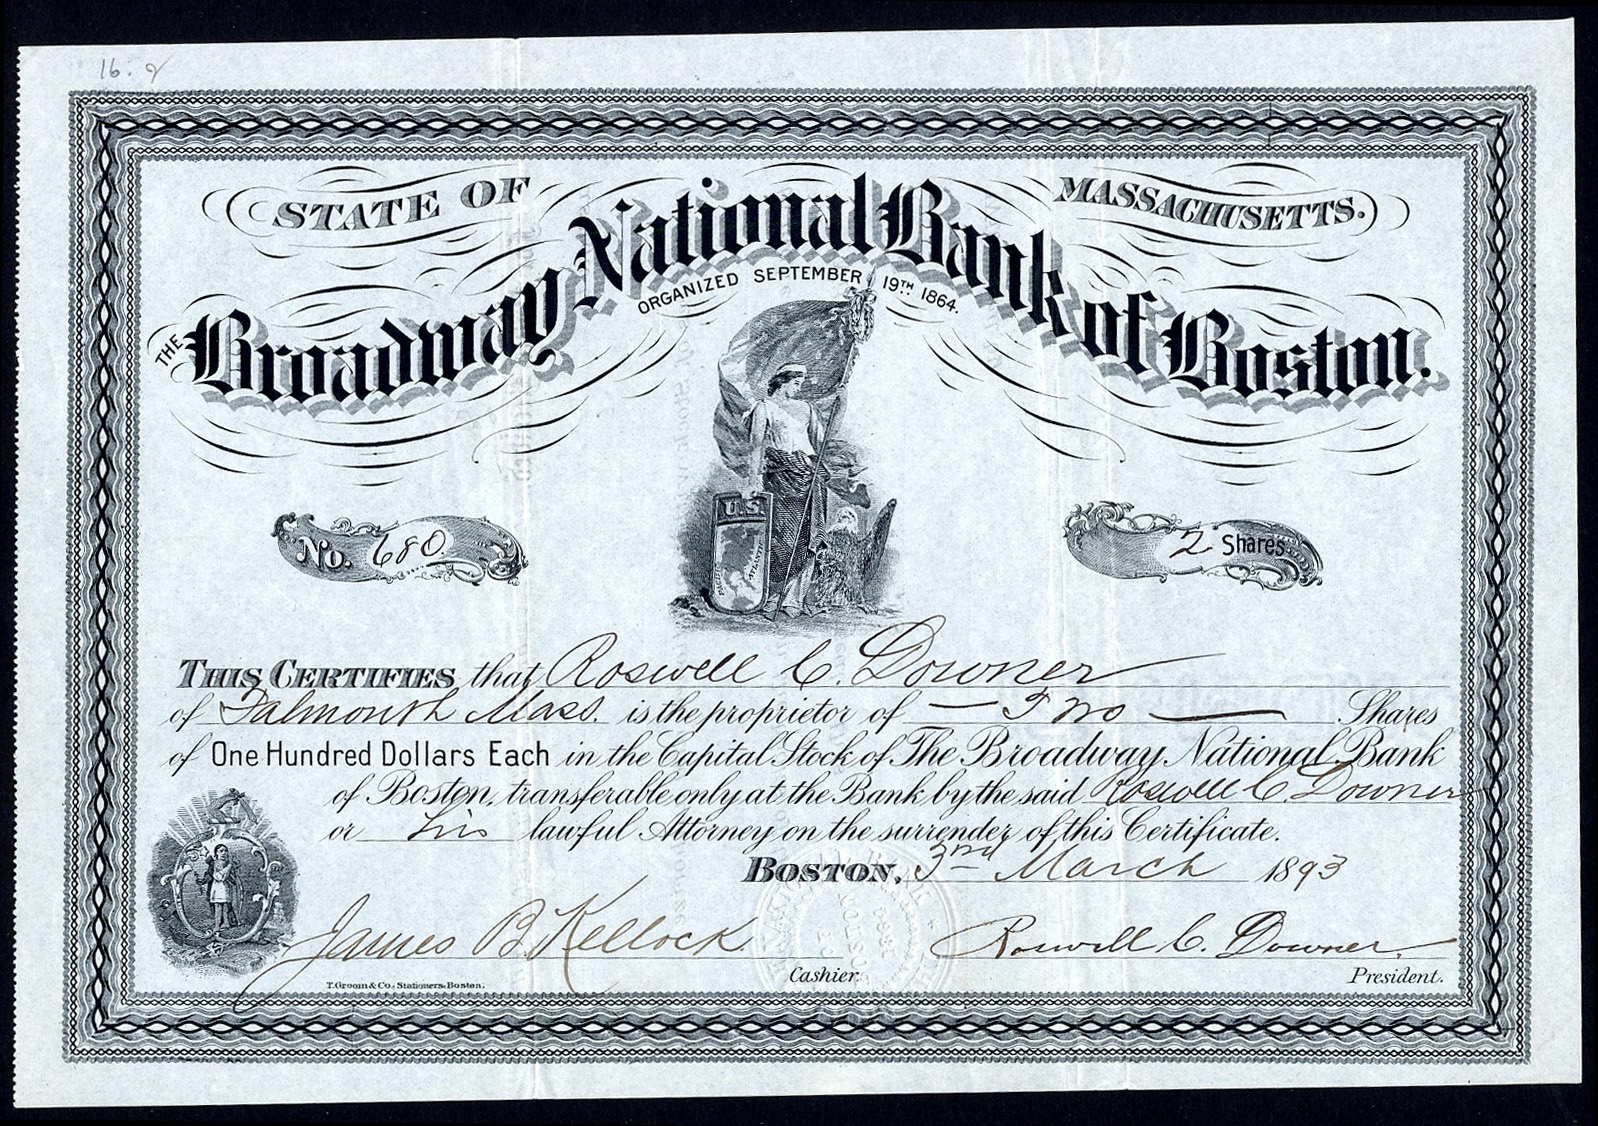 16. 9
STATE OF MASSACHUSETTS.
THE Broadway National Bank of Boston.
ORGANIZED SEPTEMBER 19TH 1864.
U.S.
ATLANTIC
No. 680
2 Shares
THIS CERTIFIES that Roswell C. Downer
of Falmouth Mass. is the proprietor of — Two — Shares
of One Hundred Dollars Each in the Capital Stock of The Broadway National Bank
of Boston, transferable only at the Bank by the said Roswell C. Downer
or his lawful Attorney on the surrender of this Certificate.
BOSTON, 3rd March 1893
James B. Kellock Roswell C. Downer
Cashier. President.
T. Groom & Co. Stationers. Boston.